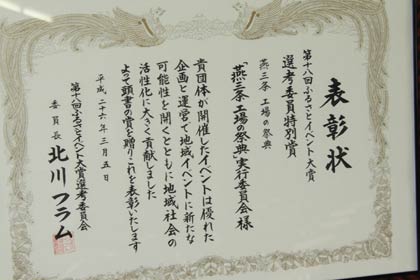 表彰状
第十八回ふるさとイベント大賞
選考委員特別賞
燕三条 工場の祭典
「燕三条 工場の祭典」実行委員会 様
貴団体が開催したイベントは優れた
企画と運営で地域イベントに新たな
可能性を開くとともに地域社会の
活性化に大きく貢献しました
よって頭書の賞を贈りこれを表彰いたします
平成二十六年三月五日
第十八回ふるさとイベント大賞選考委員会
委員長 北川フラム